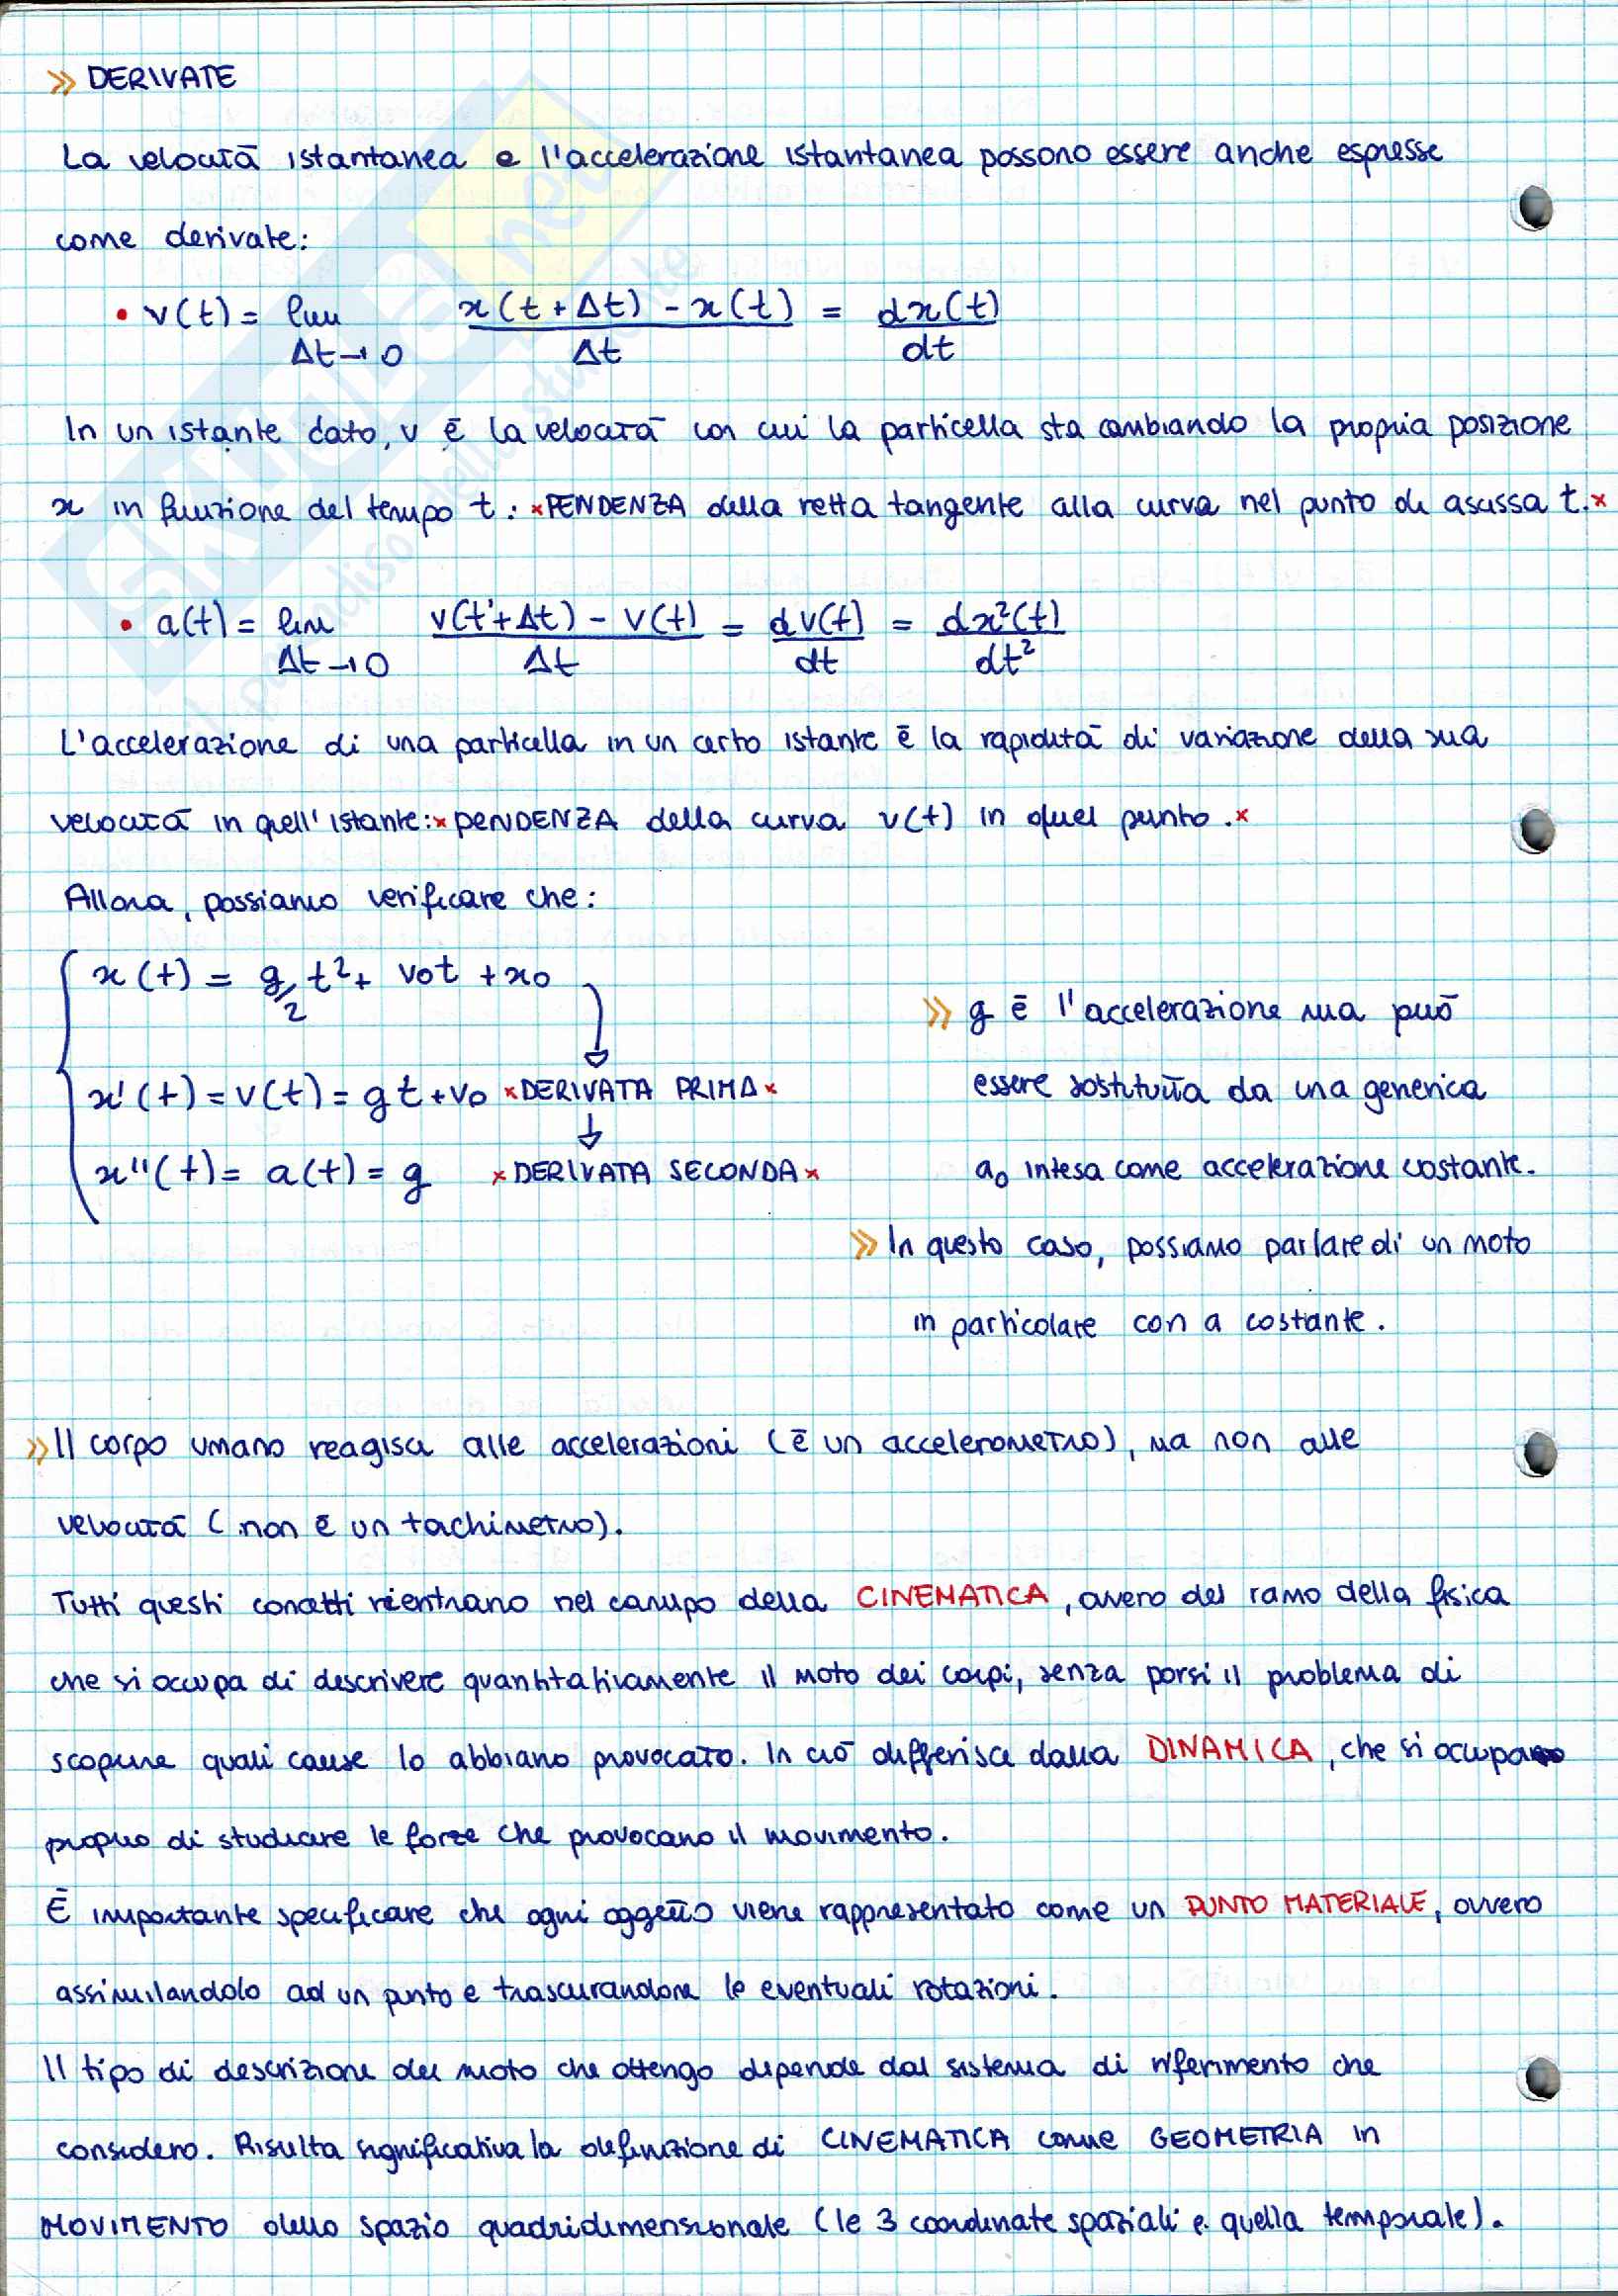 » DERIVATE
La velocità istantanea e l'accelerazione istantanea possono essere anche espresse
come derivate:
• v(t) = lim Δt→0 x(t+Δt) - x(t) / Δt = dx(t) / dt
In un istante dato, v è la velocità con cui la particella sta cambiando la propria posizione
x in funzione del tempo t: ×PENDENZA della retta tangente alla curva nel punto di ascissa t.×
• a(t) = lim Δt→0 v(t+Δt) - v(t) / Δt = dv(t) / dt = dx²(t) / dt²
L'accelerazione di una particella in un certo istante è la rapidità di variazione della sua
velocità in quell'istante: ×PENDENZA della curva v(t) in quel punto.×
Allora, possiamo verificare che:
x(t) = g/2 t² + v0t + x0
x'(t) = v(t) = gt + v0 ×DERIVATA PRIMA×
x''(t) = a(t) = g ×DERIVATA SECONDA×
» g è l'accelerazione ma può
essere sostituita da una generica
a0 intesa come accelerazione costante.
» In questo caso, possiamo parlare di un moto
in particolare con a costante.
» Il corpo umano reagisce alle accelerazioni (è un accelerometro), ma non alle
velocità (non è un tachimetro).
Tutti questi concetti rientrano nel campo della CINEMATICA, ovvero del ramo della fisica
che si occupa di descrivere quantitativamente il moto dei corpi, senza porsi il problema di
scoprire quali cause lo abbiano provocato. In ciò differisce dalla DINAMICA, che si occupa
proprio di studiare le forze che provocano il movimento.
È importante specificare che ogni oggetto viene rappresentato come un PUNTO MATERIALE, ovvero
assimilandolo ad un punto e trascurandone le eventuali rotazioni.
Il tipo di descrizione del moto che ottengo dipende dal sistema di riferimento che
considero. Risulta significativa la definizione di CINEMATICA come GEOMETRIA in
MOVIMENTO dello spazio quadridimensionale (le 3 coordinate spaziali e quella temporale).